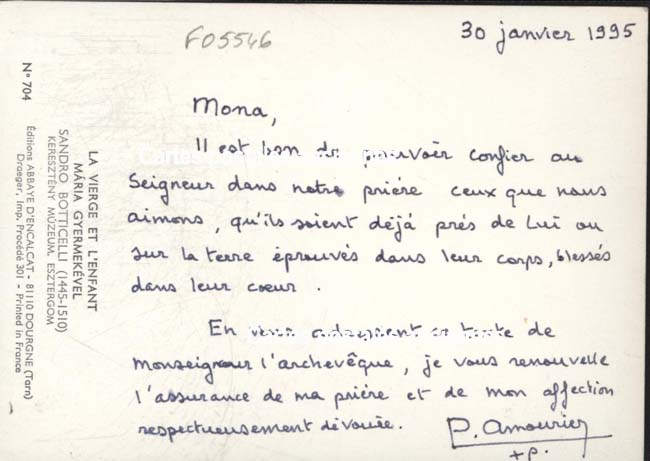 FO5546
30 janvier 1995
Mona,
Il est bon de pouvoir confier au
Seigneur dans notre prière ceux que nous
aimons, qu'ils soient déjà près de Lui ou
sur la terre éprouvés dans leur corps, blessés
dans leur coeur.
En vous adressant ce texte de
Monseigneur l'archevêque, je vous renouvelle
l'assurance de ma prière et de mon affection
respectueusement dévouée.
P. Amourier
+p.
LA VIERGE ET L'ENFANT
MÁRIA GYERMEKÉVEL
SANDRO BOTTICELLI (1445-1510)
KERESZTÉNY MÚZEUM. ESZTERGOM
N° 704
Éditions ABBAYE D'ENCALCAT - 81110 DOURGNE (Tarn)
Draeger, Imp. Procédé 301 - Printed in France